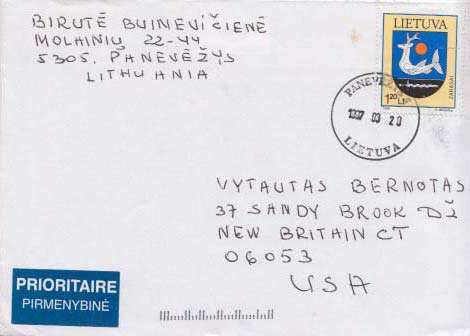 BIRUTĖ BUINEVIČIENĖ
MOLAINIŲ 22-44
5305, PANEVĖŽYS
LITHUANIA
LIETUVA
ZARASAI
1.20 Lt
PANEVĖŽYS
1997 03 20
LIETUVA
VYTAUTAS BERNOTAS
37 SANDY BROOK DŽ
NEW BRITAIN CT
06053
USA
PRIORITAIRE
PIRMENYBINĖ